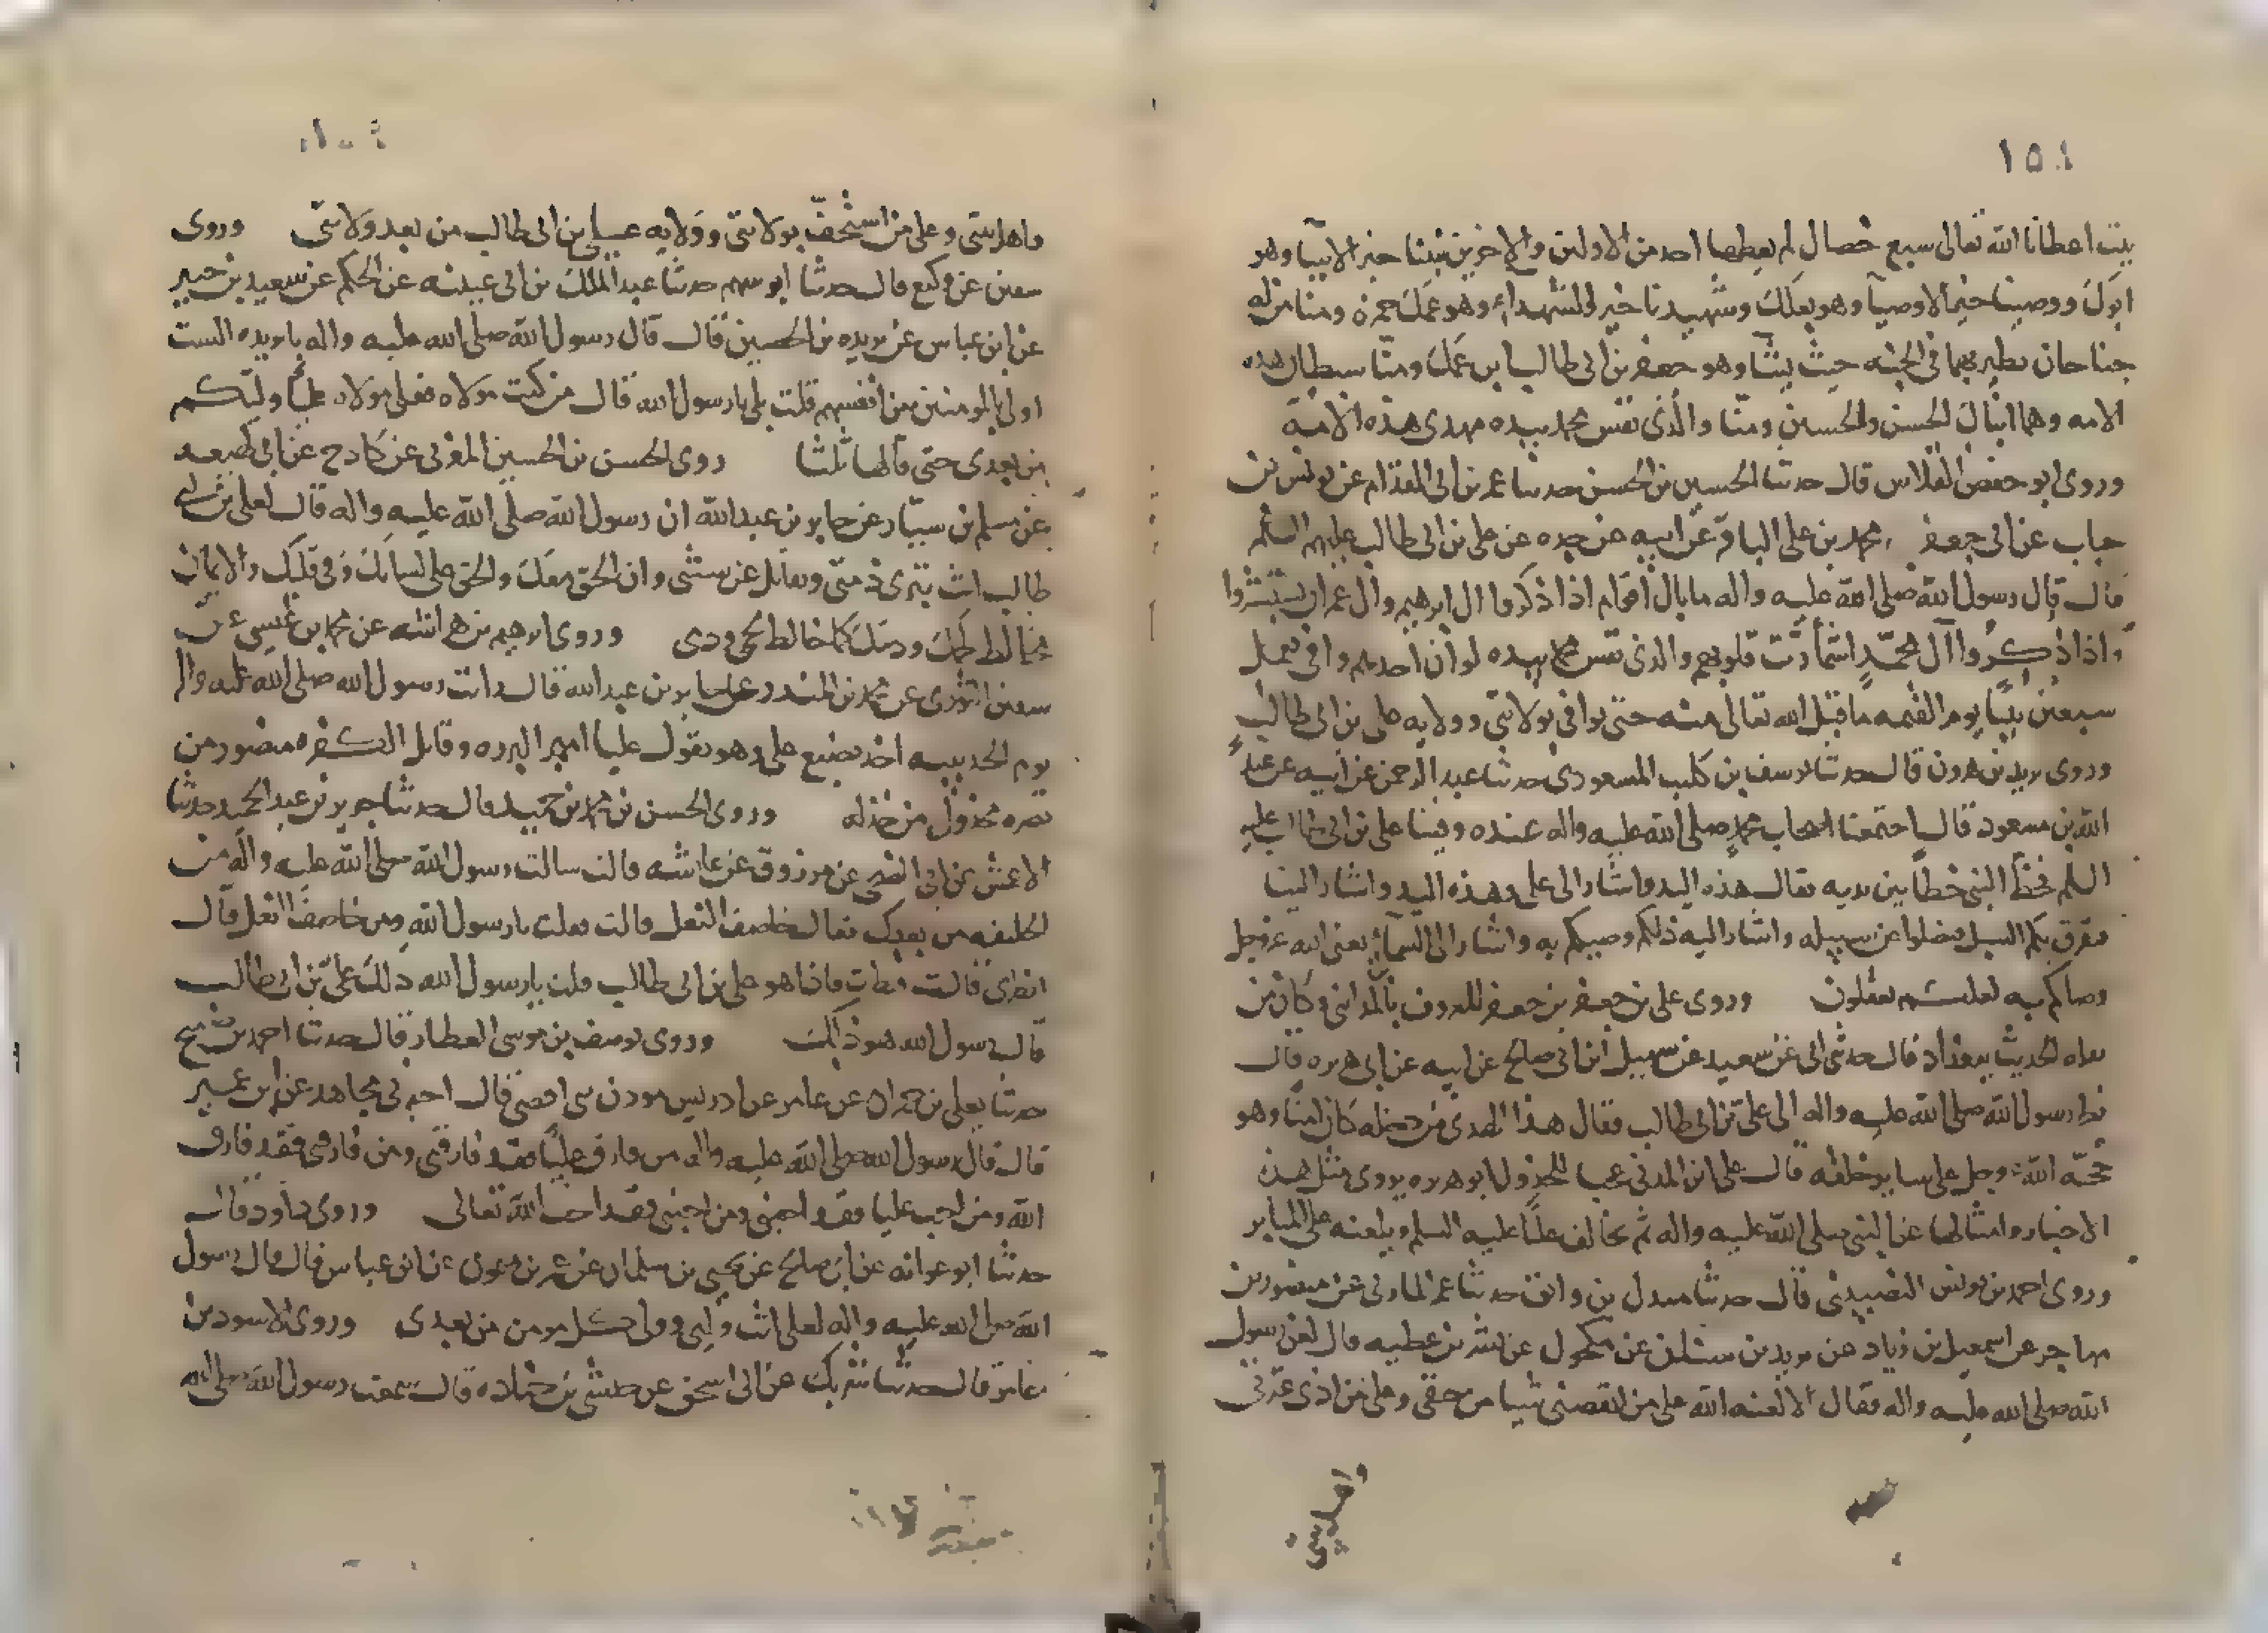 بيت اعطانا الله تعالى سبع خصال لم يعطها احد من الاولين والاخرين نبينا خير الانبيا وهو
ابوك ووصينا خير الاوصيآ وهو بعلك وشهيدنا خير الشهداء وهو عمك حمزه ومنا من له
جناحان يطير بهما في الجنه حيث يشآ وهو جعفر بن ابي طالب ابن عمك ومنا سبطا هذه
الامه وهما ابناك الحسن والحسين ومنّا والذى نفس محمد بيده مهدى هذه الامة
وروى ابو حفص الفلاس قال حدثنا الحسين بن الحسن حدثنا عمر بن ابي المقدام عن يونس بن
حباب عن ابي جعفر محمد بن على الباقر عن ابيه عن جده عن على بن ابى طالب عليهم السلم
قال قال رسول الله صلى الله عليه واله ما بال اقوام اذا ذكروا ال ابرهيم وال عمران يستبشروا
واذا ذكروا آل محمّد اشمأزت قلوبهم والذى نفس محمد بيده لو ان احدهم وافى بعمل
سبعين نبيًا يوم القيمه ما قبل الله تعالى منه حتى يوافى بولايتى وولايه على بن ابى طالب
وروى بن هرون قال حدثنا يوسف بن كليب المسعودى حدثنا عبد الرحمن عن ابيه عن عبد
الله بن مسعود قال اجتمعنا اصحاب محمد صلى الله عليه واله عنده وفينا على بن ابى طالب عليه
السلم فخط النبى خطا بين يديه فقال هذه اليد واشار الى على وهذه اليد واشار الينا
تفرق بكم السبل فضلوا عن سبيله واشار اليه ذلكم وصيكم به واشار الى السمآء يعنى الله عز وجل
وصاكم به لعلكم تعقلون وروى على بن جعفر بن جعفر المعروف بالمداينى وكان من
الحديث ببغداد قال حدثنى ابى عن سعيد عن سهيل ابن ابى صالح عن ابيه عن ابى هريره قال
نظر رسول الله صلى الله عليه واله الى على بن ابى طالب فقال هذا الهدى من دخله كان امنا وهو
حجّه الله عز وجل على ساير خلقه قال على ابن المدنى عجبا ابو هريره يروى مثل هذه
الاخبار وامثالها عن النبى صلى الله عليه واله ثم يخالف عليًا عليه السلم ويلعنه على المنابر
وروى احمد بن يونس قال حدثنا بن حدثنا عمر عن منصور بن
مهاجر عن اسمعيل بن زياد عن بن عن مكحول عن بشر بن عطيه قال لعن رسول
الله صلى الله عليه واله فقال الا لعنه الله على من انقصنى شيا من حقى وعلى من اذى عترتى
واهل بيتى
واهل بيتى وعلى من استخفّ بولايتى وولايه على بن ابى طالب من بعد ولايتى وروى
سفين عن وكيع قال حدثنا ابو سهم حدثنا عبد الملك بن ابى عن الحكم عن سعيد بن جبير
عن ابن عباس عن بريده بن الحصين قال قال رسول الله صلى الله عليه واله يا بريده الست
اولى بالمومنين من انفسهم قلت بلى يا رسول الله قال من كنت مولاه فعلى مولاه وليّكم
من بعدى حتى قالها ثلثا روى الحسن بن الحسين العرنى عن كادح عن ابى
عن مسلم بن سيّار عن جابر بن عبد الله ان رسول الله صلى الله عليه واله قال لعلى بن ابى
طالب انت تبرى ذمتى وتقاتل عن سنتى وان الحق معك والحق على لسانك وفى قلبك والايمان
مخالط لحمك ودمك كما خالط لحمى ودمى وروى ابرهيم بن عن محمد بن عيسى عن
سفين الثورى عن محمد بن المنكدر عن جابر بن عبد الله قال رايت رسول الله صلى الله عليه واله
يوم الحديبيه اخذ بضبع على وهو يقول عليا امير البرره وقاتل الكفره منصور من
نصره مخذول من خذله وروى الحسن بن محمد بن حميد قال حدثنا جرير بن عبد الحميد حدثنا
الاعمش عن ابى الضحى عن عن عايشه قالت سالت رسول الله صلى الله عليه واله من
الخليفه من بعدك فقال خاصف النعل قالت فقلت يا رسول الله ومن خاصف النعل قال
انظرى قالت نظرت فاذا هو على بن ابى طالب قلت يا رسول الله ذلك علىّ بن ابى طالب
قال رسول الله هو ذالك وروى يوسف بن موسى العطار قال حدثنا احمد بن
حدثنا يعلى بن عن عامر عن ادريس موذن قال اخبرنى مجاهد عن ابن عمر
قال قال رسول الله صلى الله عليه واله من فارق عليًا فقد فارقنى ومن فارقنى فقد فارق
الله ومن احب عليا فقد احبنى ومن احبنى فقد احب الله تعالى وروى داود قال
حدثنا ابو عوانه عن صالح عن يحيى بن سليمان عن عمر بن عن ابن عباس قال قال رسول
الله صلى الله عليه واله لعلى انت وليى وولى كل مومن من بعدى وروى الاسود بن
عامر قال حدثنا شريك عن ابى اسحق عن حبشى بن جناده قال سمعت رسول الله صلى الله